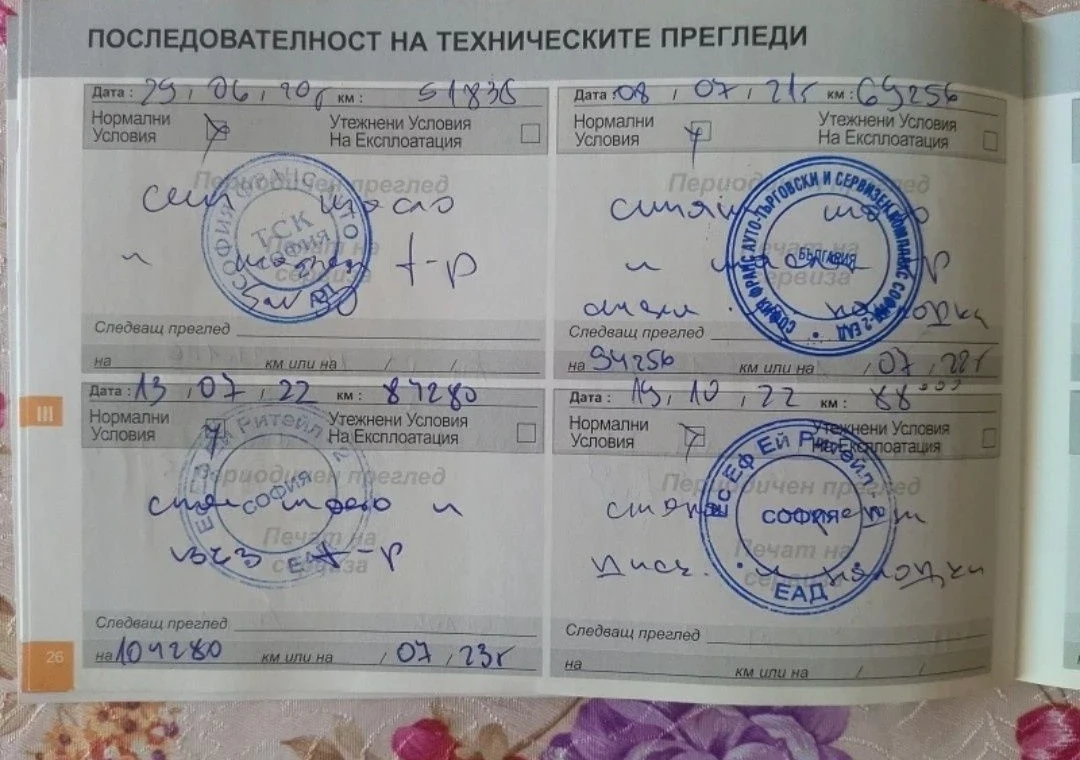 ПОСЛЕДОВАТЕЛНОСТ НА ТЕХНИЧЕСКИТЕ ПРЕГЛЕДИ
Дата : 29, 06, 20г км : 51836
Нормални Условия Утежнени Условия На Експлоатация
Периодичен преглед
масло
Печат на сервиза
и ф-р
ТСК
СОФИЯ
5w30
Следващ преглед
на км или на / /
Дата : 08 / 07 / 21г км : 69256
Нормални Условия Утежнени Условия На Експлоатация
Периодичен преглед
масло
Печат на
и ф-р
СОФИЯ ФРАНС АУТО-ТЪРГОВСКИ И СЕРВИЗЕН КОМПЛЕКС СОФИЯ-2 ЕАД
БЪЛГАРИЯ
Следващ преглед
на 94256 км или на / 07 / 22г
III
Дата : 13, 07, 22 км : 87280
Нормални Условия Утежнени Условия На Експлоатация
Периодичен преглед
масло и
Печат на сервиза
ф-р
Ритейл
СОФИЯ
ЕАД
Следващ преглед
на 107280 км или на / 07, 23г
Дата : 19, 10, 22 км : 88000
Нормални Условия Утежнени Условия На Експлоатация
Периодичен преглед
Печат на сервиза
диск. и накладки
Ес Еф Ей Ритейл 2
СОФИЯ
ЕАД
Следващ преглед
на км или на / /
26